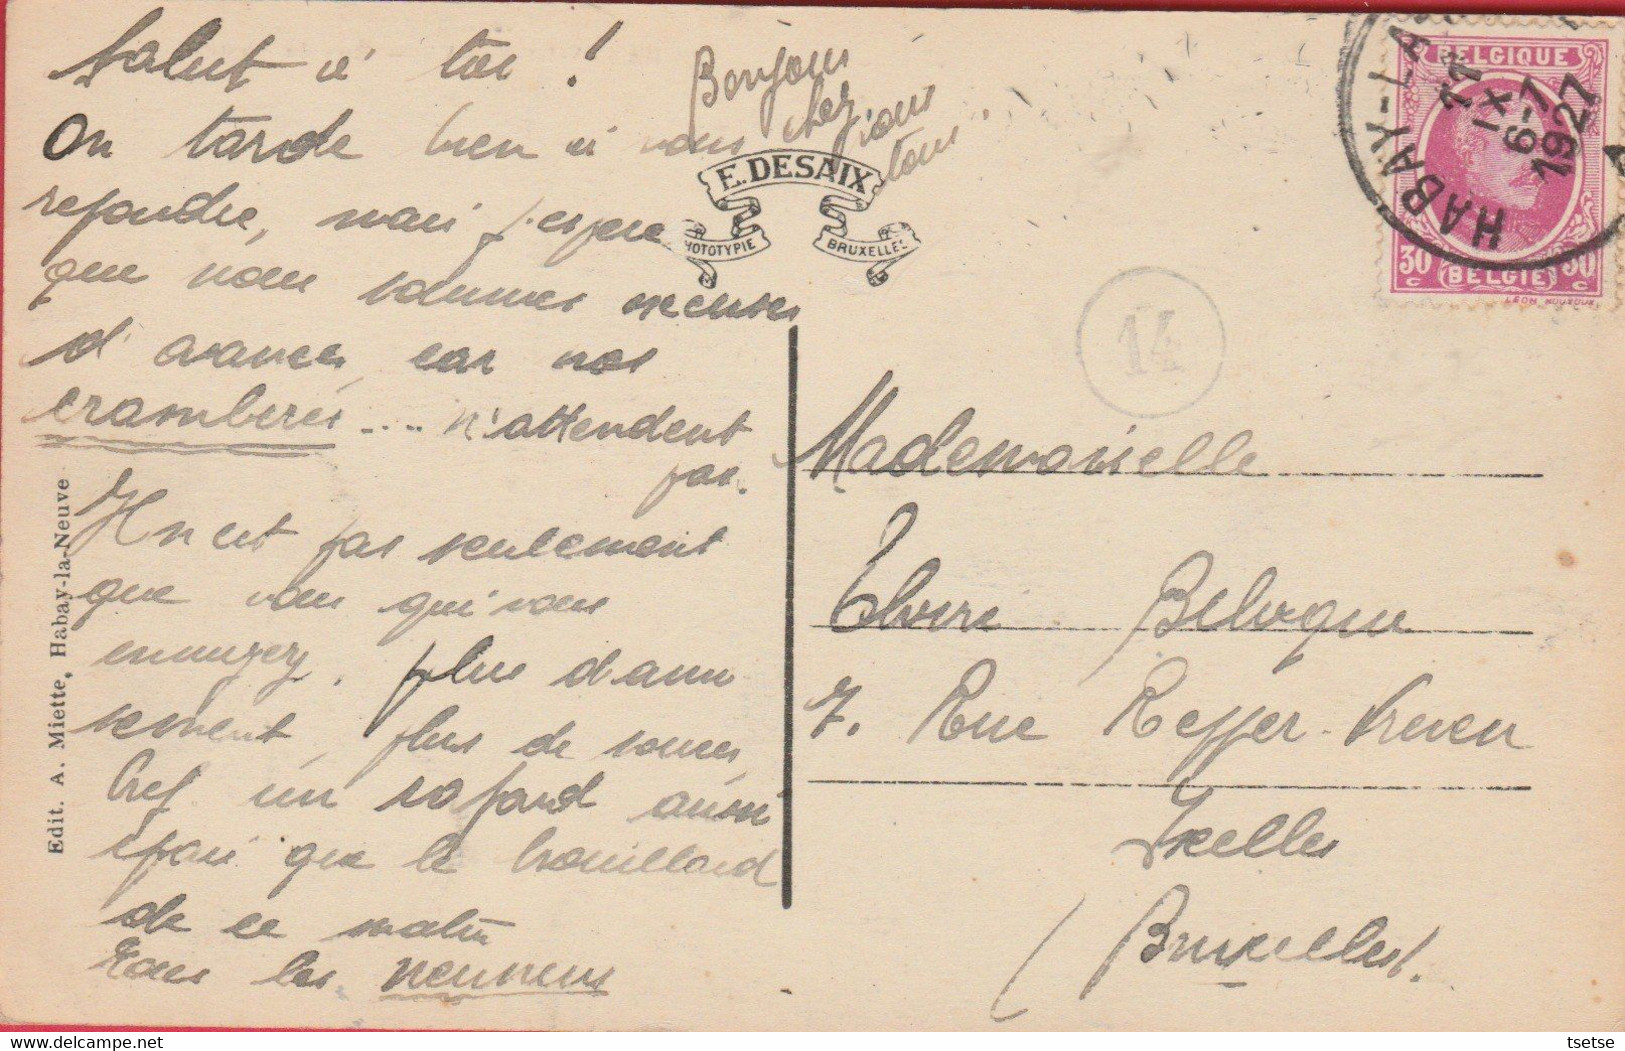 Salut à toi !
On tarde bien à vous
repondre, mais j'espere
que nous sommes excuses
d'avance, car nos
cramberes .... n'attendent
pas.
Il n'est pas seulement
que vous qui vous
ennuyez. plus d'amu
sement, plus de
bref un cafard aussi
épais que le brouillard
de ce matin
Tous les
Bonjour
chez
vous
tous.
E. DESAIX
PHOTOTYPIE
BRUXELLES
Edit. A. Miette, Habay-la-Neuve
BELGIQUE
30 c
BELGIE
30 c
HABAY-LA
11
IX
6-7
1927
A
14
Mademoiselle
7. Rue
Ixelles
(Bruxelles).
tsetse